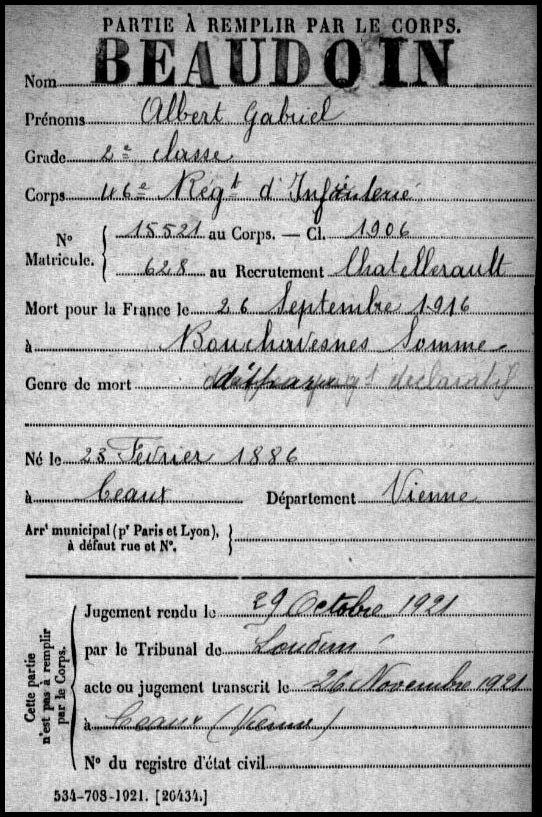 PARTIE À REMPLIR PAR LE CORPS.
Nom BEAUDOIN
Prénoms Albert Gabriel
Grade 2e classe
Corps 46e Régt d'Infanterie
No Matricule. 15521 au Corps. — Cl. 1906
628 au Recrutement Chatellerault
Mort pour la France le 26 Septembre 1916
à Bouchavesnes Somme
Genre de mort gt déclaratif
Né le 23 Février 1886
à Ceaux Département Vienne
Arrt municipal (pr Paris et Lyon),
à défaut rue et No.
Cette partie n'est pas à remplir par le Corps.
Jugement rendu le 29 Octobre 1921
par le Tribunal de Loudun
acte ou jugement transcrit le 26 Novembre 1921
à Ceaux (Vienne)
No du registre d'état civil
534-708-1921. [26434.]